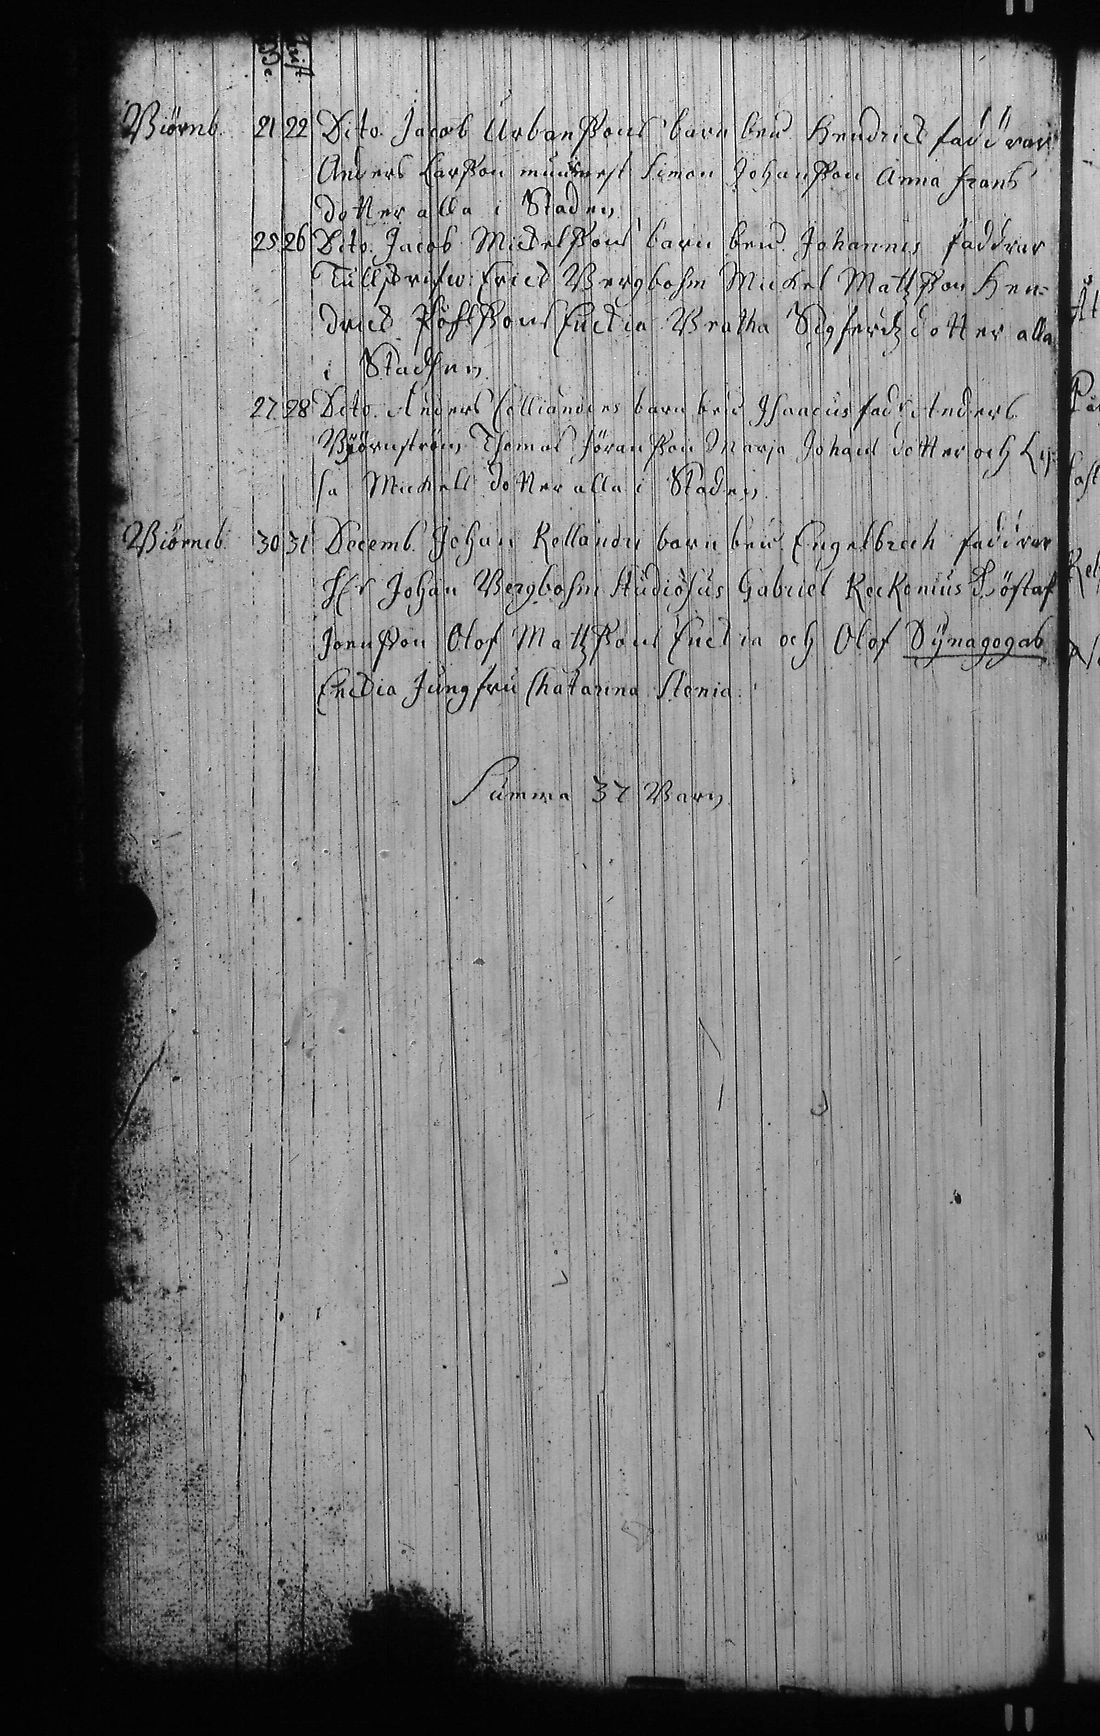 Biörneb. 21 22 Dito. Jacob Urbanßons barn ben: Hendrich faddrar
Anders Larßon Simon Johanßon Anna Frans
dotter alla i Staden
25 26 Dito. Jacob Mickelßons barn ben: Johannes faddrar
Tullskrifw: Erich Bergbohm Mickel Mattzßon Hen-
drich Påhlßons Enckia Beatha Sigfredz dotter alla
i Staden
27 28 Dito. Anders barn ben: fadd: Anders
Björnström Thomas Jöranßon Maria Johans dotter och Li-
sa Mickels dotter alla i Staden
Biörneb. 30 31 Decemb. Johan Kellander barn ben: Engelbrech faddrar
Hr Johan Bergbohm Studiosus Gabriel Keckonius Göstaf
Joenßon Olof Mattzßons Enckia och Olof Synagogas
Enckia Jungfru Chatarina Stenia.
Summa 37 Barn